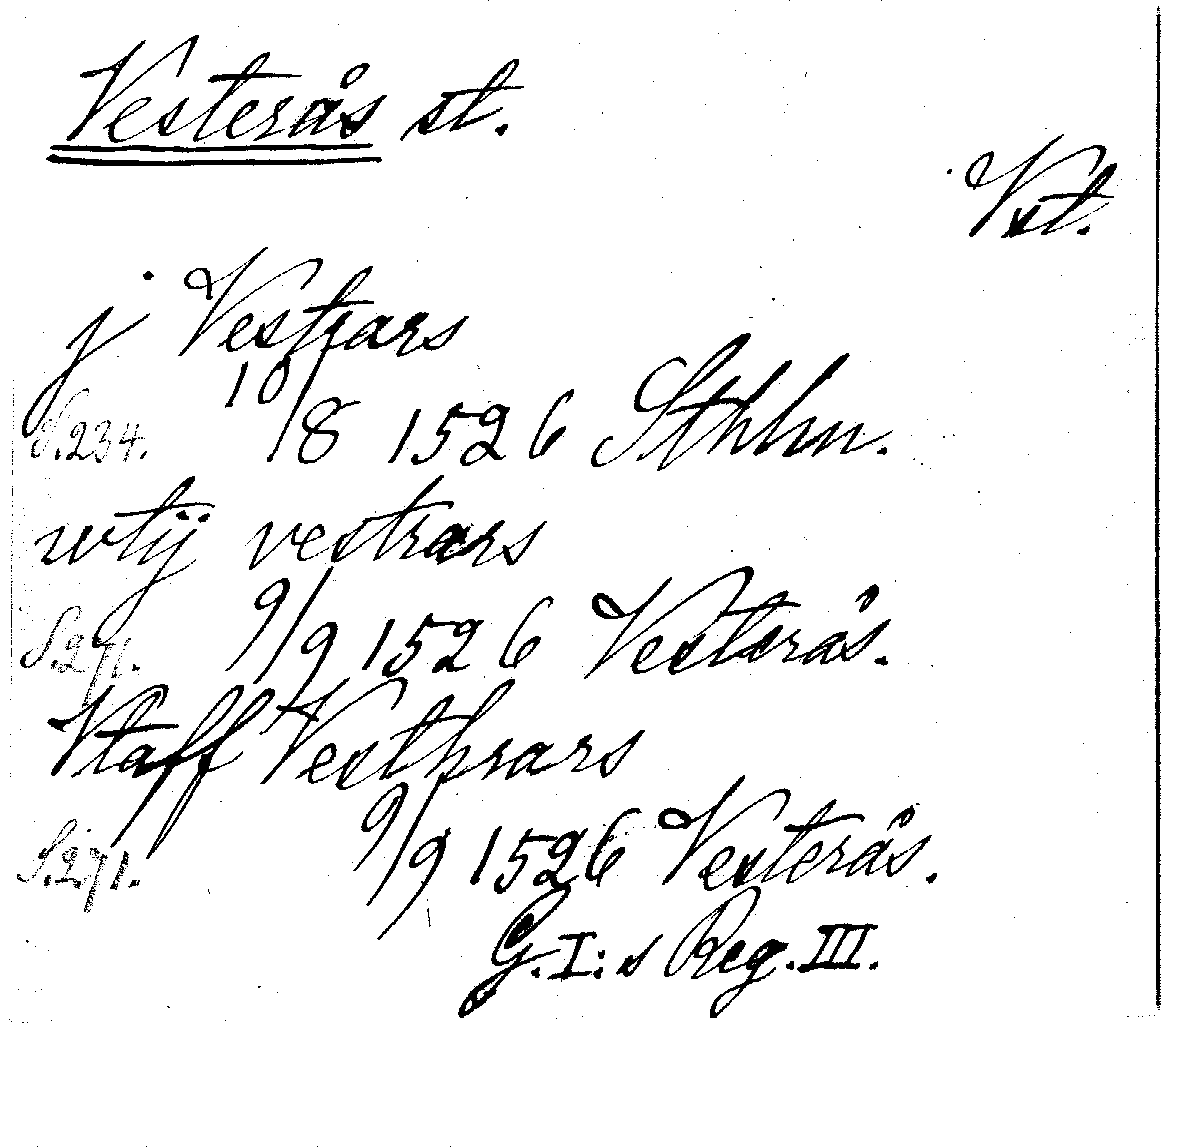 Vesterås st.
Vst.
j Vestrars
S. 234. 10/8 1526 Sthhm.
wtij vestrars
S. 271. 9/9 1526 Vesterås.
Vtaff Vesthrars
S. 271. 9/9 1526 Vesterås.
G. I:s Reg. III.